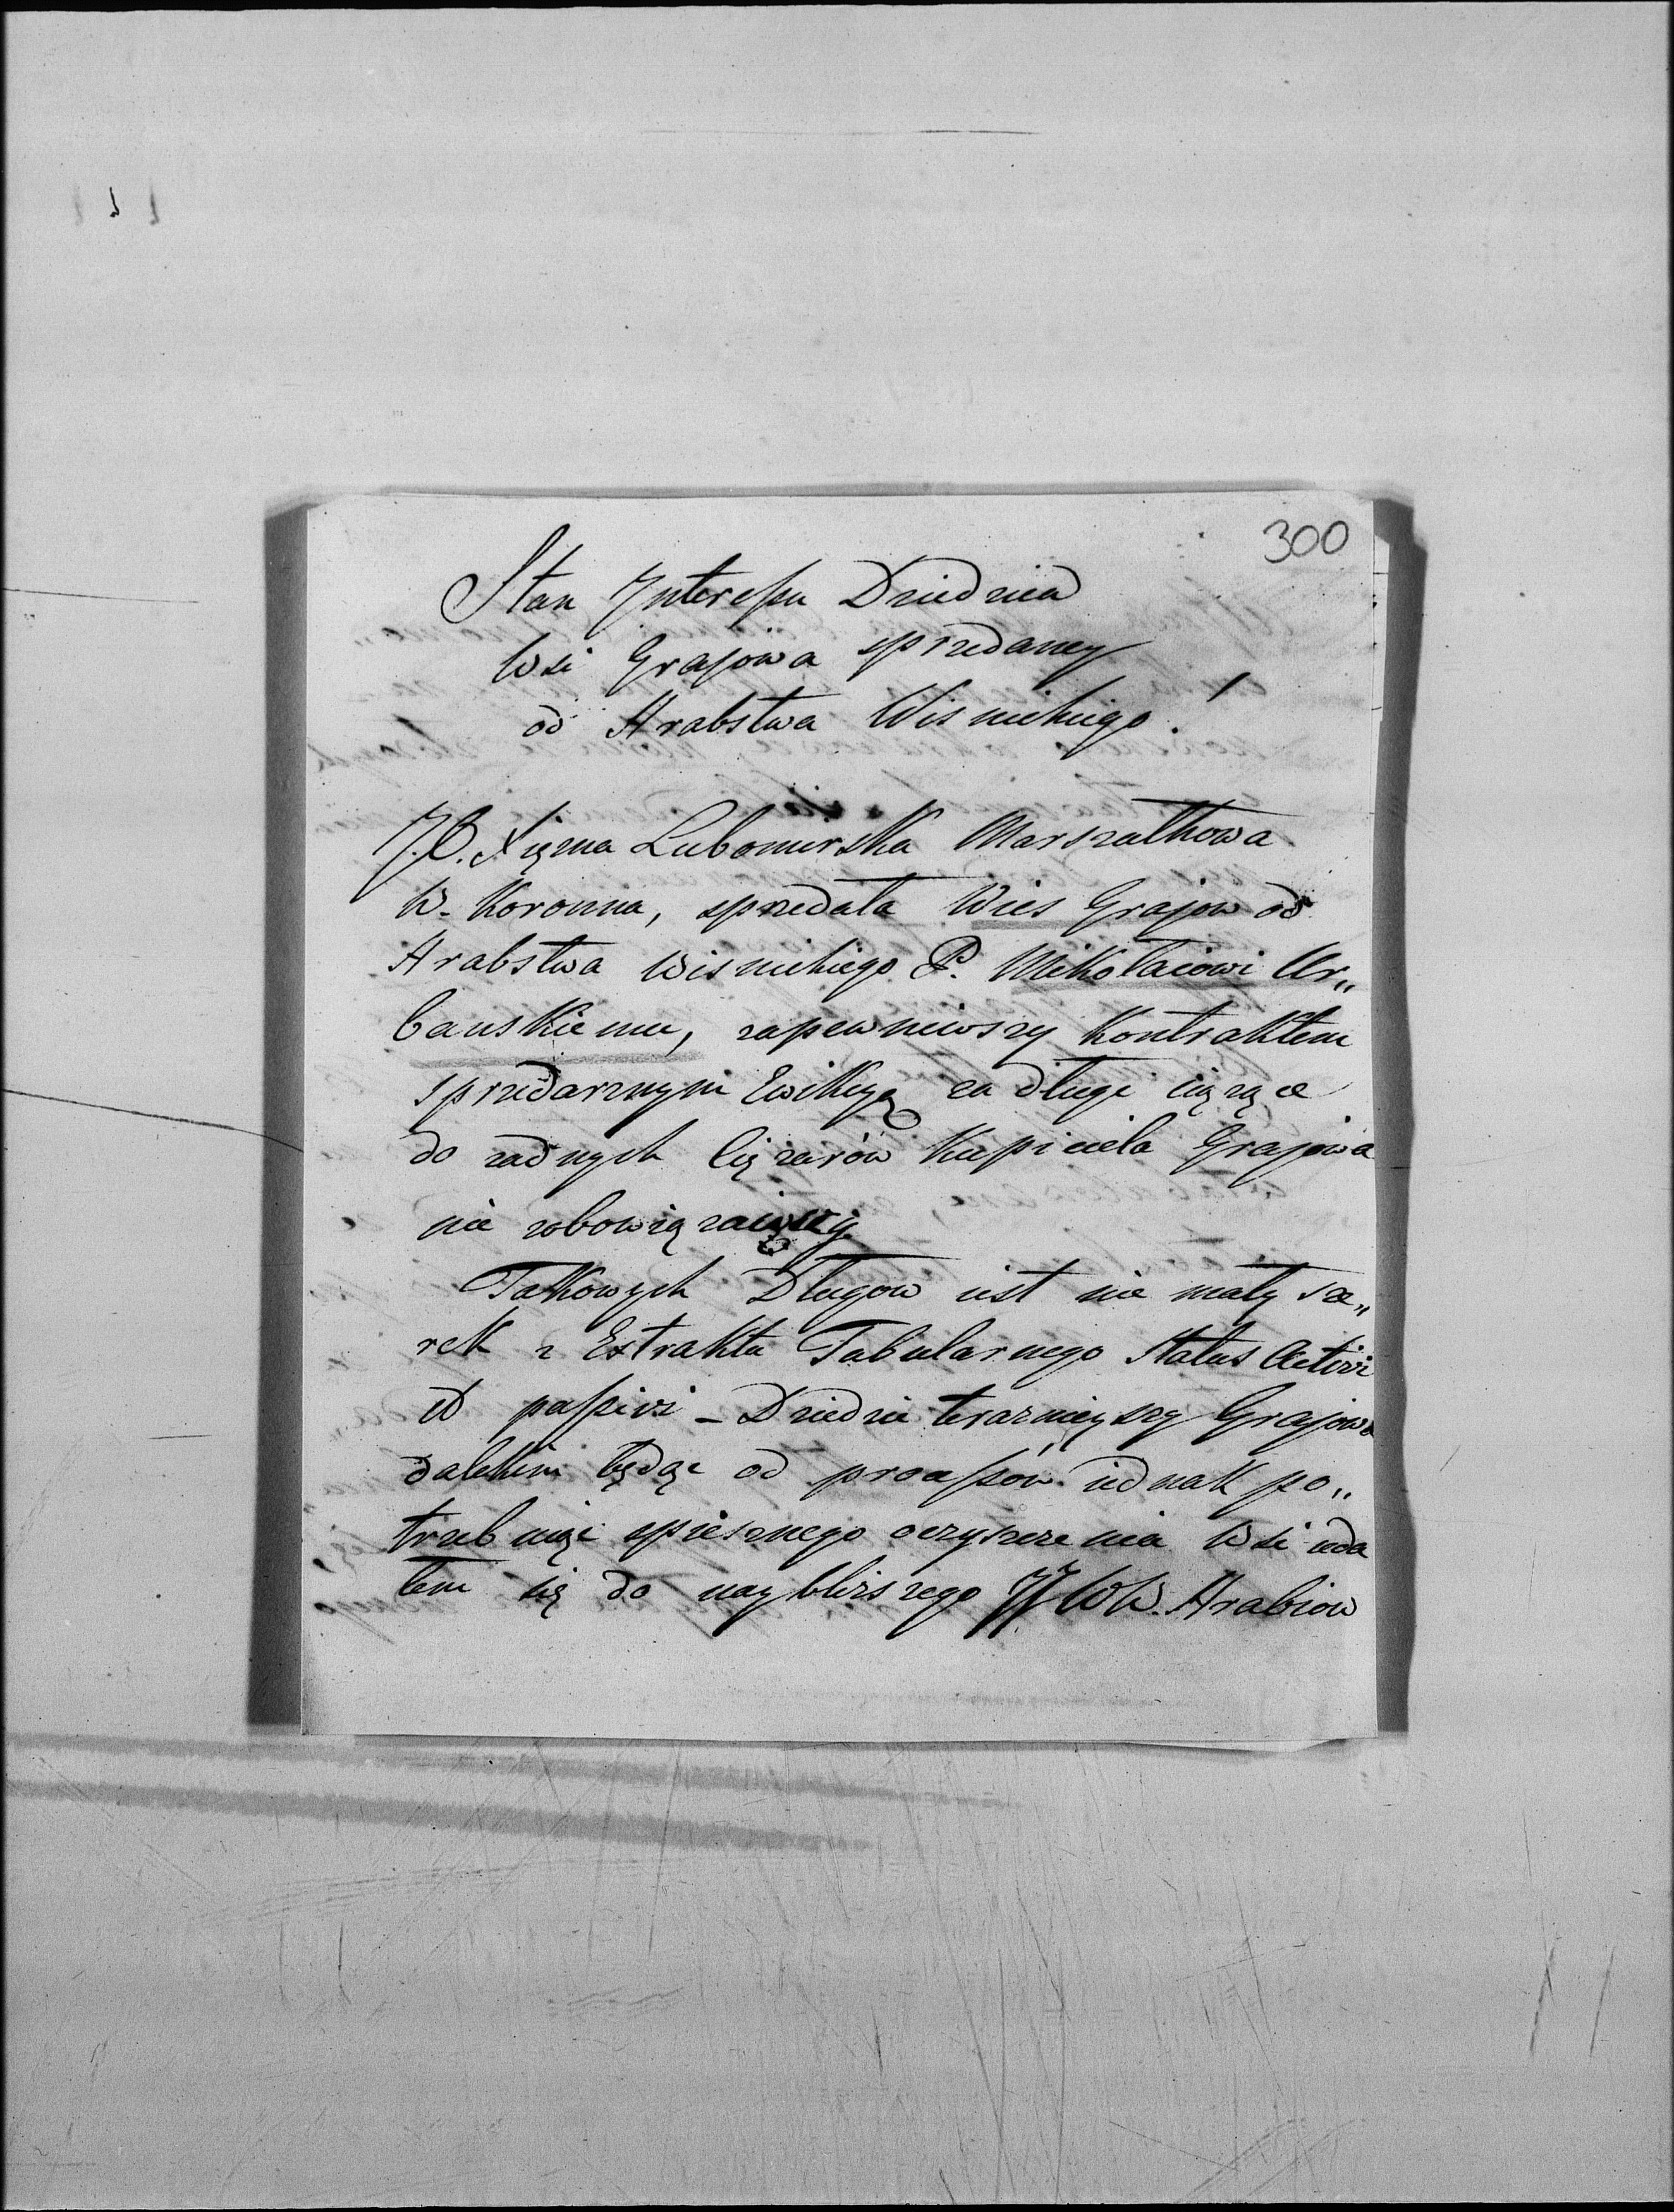 300
Stan Interessu Dziedzica
Wsi Grajowa sprzedaney
od Hrabstwa Wisnickiego.
J.O. Xiężna Lubomirska Marszałkowa
W. Koronna, sprzedała Wies Grajow od
Hrabstwa Wisnickiego P. Mikołaiowi Ur„
banskiemu, zapewniwszy Kontraktem
sprzedarznym Ewikcyą za długi ciążące
do żadnych Ciężarów Kupiciela Grajowa
nie zobowiązaiący
Takowych Długow iest nie mały sze„
rek z Extraktu Tabularnego Status Activi
et passivi – Dziedzic terazmieyszy Grajowa
dalekim będąc od processów iednak po„
trzebuiąc spiesznego oczyszczenia Wsi uda
łem się do naybliższego JJWW. Hrabiow